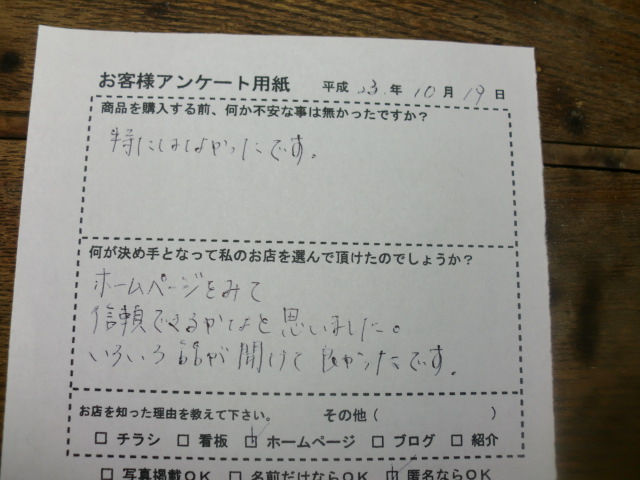 お客様アンケート用紙 平成 23年 10月 19日
商品を購入する前、何か不安な事は無かったですか？
特にはなかったです。
何が決め手となって私のお店を選んで頂けたのでしょうか？
ホームページをみて
信頼できるかなと思いました。
いろいろ話が聞けて良かったです。
お店を知った理由を教えて下さい。 その他（ ）
□ チラシ □ 看板 ☑ ホームページ □ ブログ □ 紹介
□ 写真掲載OK □ 名前だけならOK ☑ 匿名ならOK